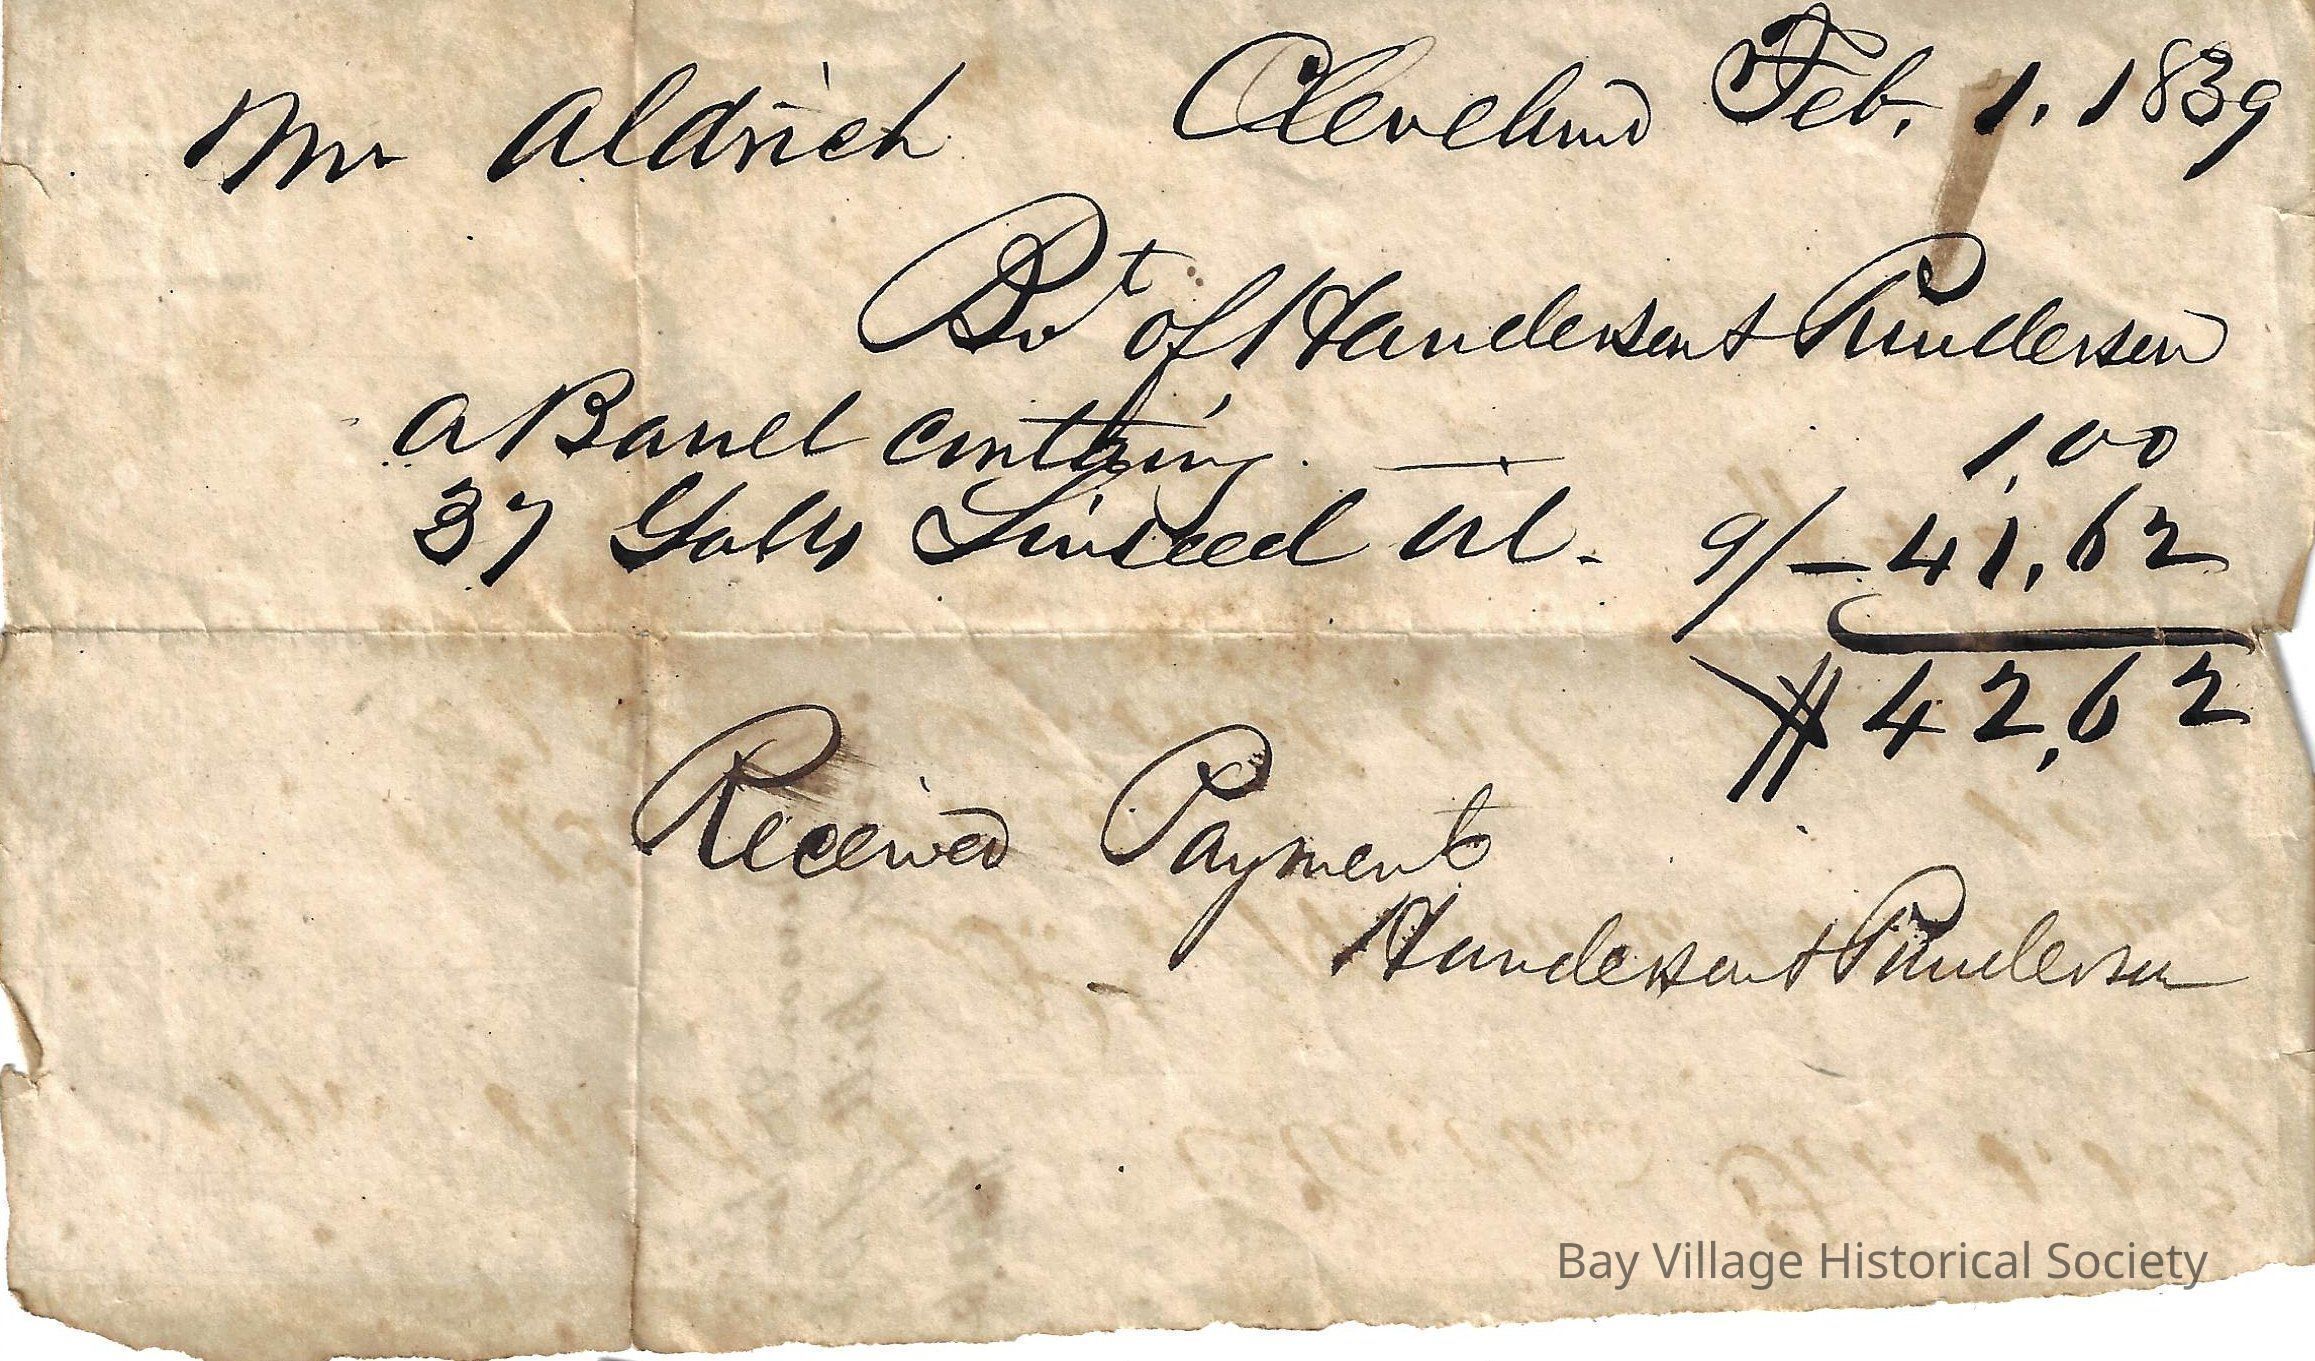 Mr Aldrich Cleveland Feb. 1. 1839
Bot of Henderson & Punderson
a Barrel containg — 1,00
37 Galls Linseed Oil. 9/– 41,62
$42,62
Received Payment
Henderson & Punderson
Bay Village Historical Society